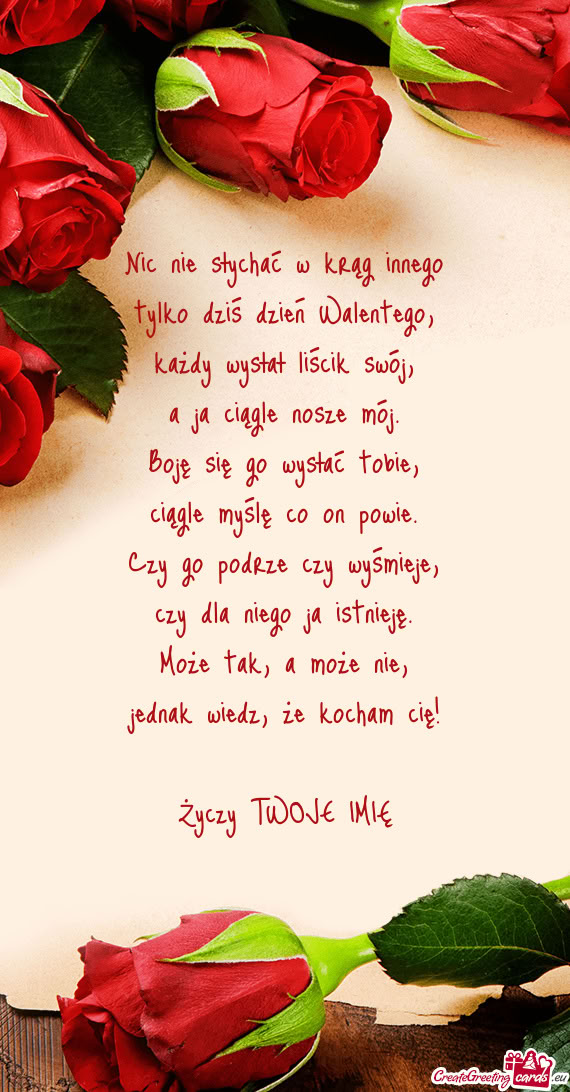 Nic nie słychać w krąg innego
tylko dziś dzień Walentego,
każdy wysłał liścik swój,
a ja ciągle nosze mój.
Boję się go wysłać Tobie,
ciągle myślę co on powie.
Czy go podrze czy wyśmieje,
czy dla niego ja istnieję.
Może tak, a może nie,
jednak wiedz, że kocham cię!
Życzy TWOJE IMIĘ
CreateGreetingcards.eu